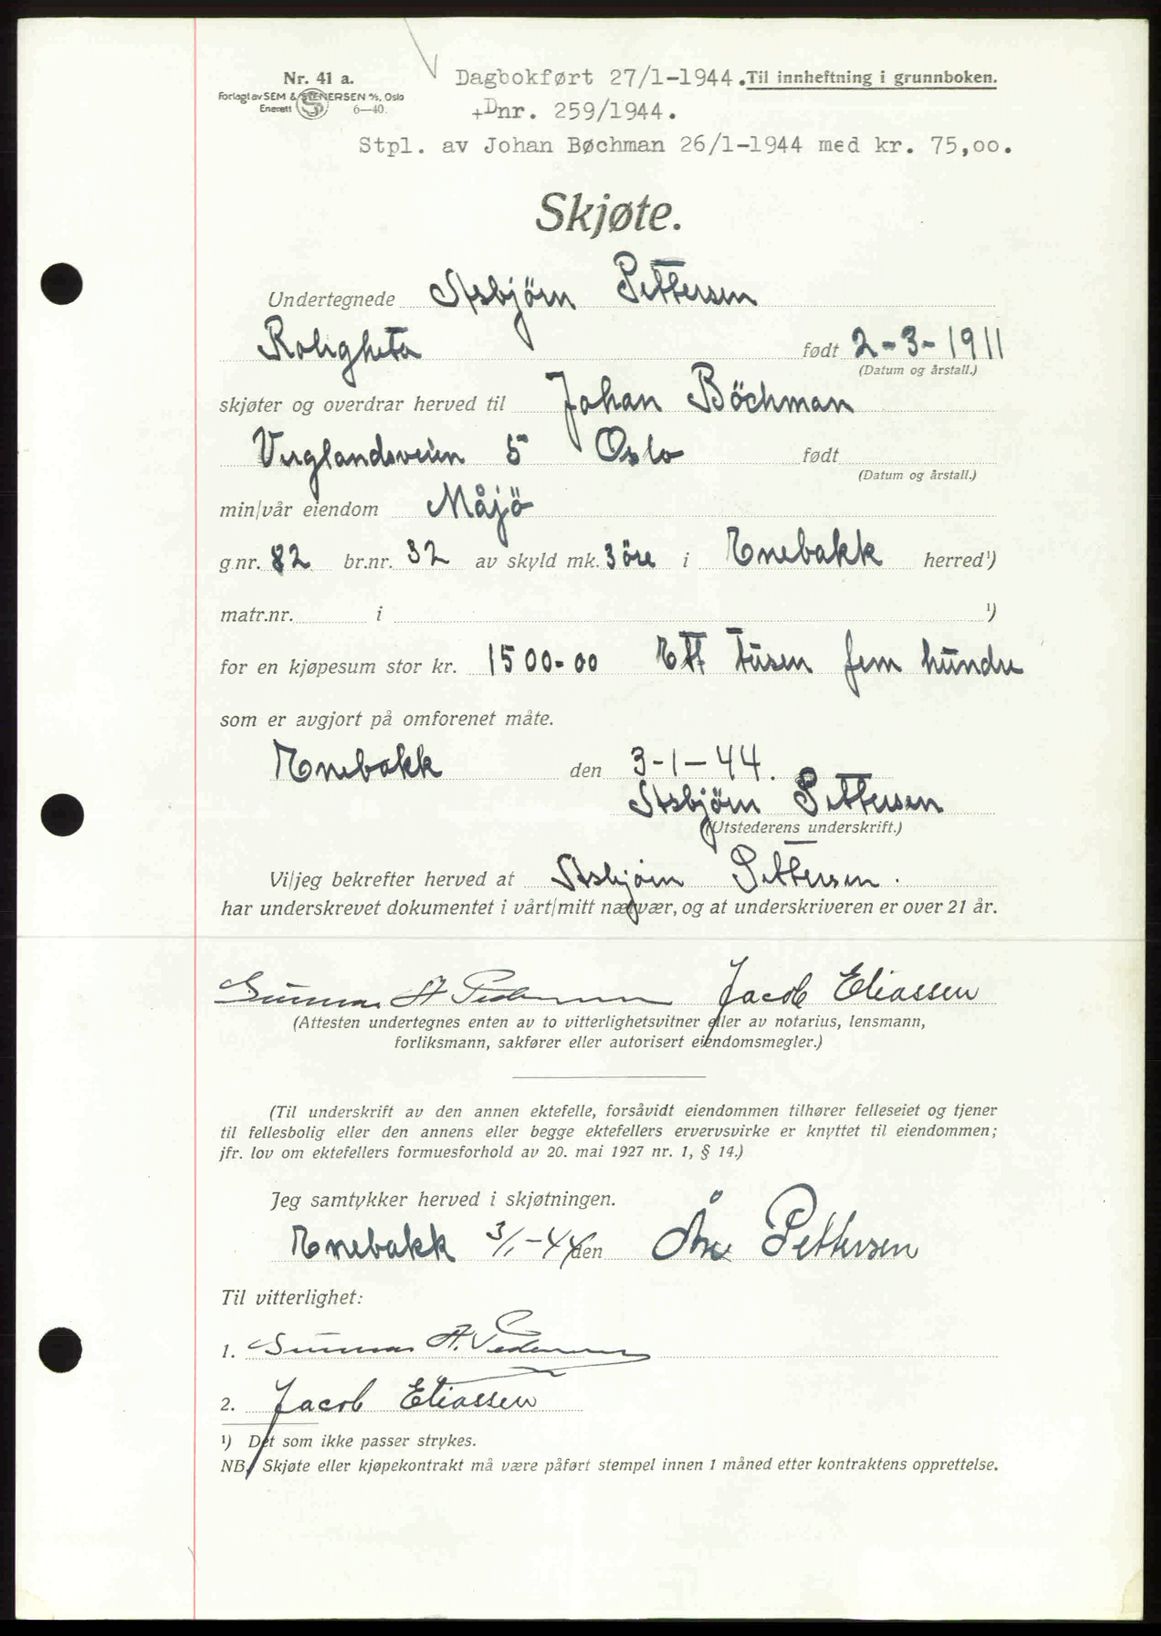 Nr. 41 a.
Forlagt av SEM & STENERSEN A/S, Oslo
Enerett 6—40.
Dagbokført 27/1-1944. Til innheftning i grunnboken.
+Dnr. 259/1944.
Stpl. av Johan Bøchman 26/1-1944 med kr. 75,00.
Skjøte.
Undertegnede Asbjörn Pettersen
Roligheta født 2-3-1911
(Datum og årstall.)
skjøter og overdrar herved til Johan Böchman
Verglandsveien 5 Oslo født
(Datum og årstall.)
min/vår eiendom Måjö
g.nr. 82 br.nr. 32 av skyld mk. 3 öre i Enebakk herred¹)
matr.nr. i ¹)
for en kjøpesum stor kr. 1500-00 Ett tusen fem hundre
som er avgjort på omforenet måte.
Enebakk den 3-1-44.
Asbjörn Pettersen
(Utstederens underskrift.)
Vi/jeg bekrefter herved at Asbjörn Pettersen.
har underskrevet dokumentet i vårt/mitt nærvær, og at underskriveren er over 21 år.
Gunnar A Pedersen Jacob Eliassen
(Attesten undertegnes enten av to vitterlighetsvitner eller av notarius, lensmann,
forliksmann, sakfører eller autorisert eiendomsmegler.)
(Til underskrift av den annen ektefelle, forsåvidt eiendommen tilhører felleseiet og tjener
til fellesbolig eller den annens eller begge ektefellers ervervsvirke er knyttet til eiendommen;
jfr. lov om ektefellers formuesforhold av 20. mai 1927 nr. 1, § 14.)
Jeg samtykker herved i skjøtningen.
Enebakk 3/1-44 den Pettersen
Til vitterlighet:
1. Gunnar A. Pedersen
2. Jacob Eliassen
¹) Det som ikke passer strykes.
NB. Skjøte eller kjøpekontrakt må være påført stempel innen 1 måned etter kontraktens opprettelse.